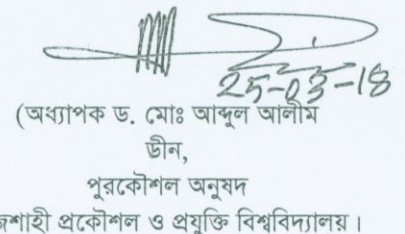 25-03-18
(অধ্যাপক ড. মোঃ আব্দুল আলীম
ডীন,
পুরকৌশল অনুষদ
জশাহী প্রকৌশল ও প্রযুক্তি বিশ্ববিদ্যালয়।